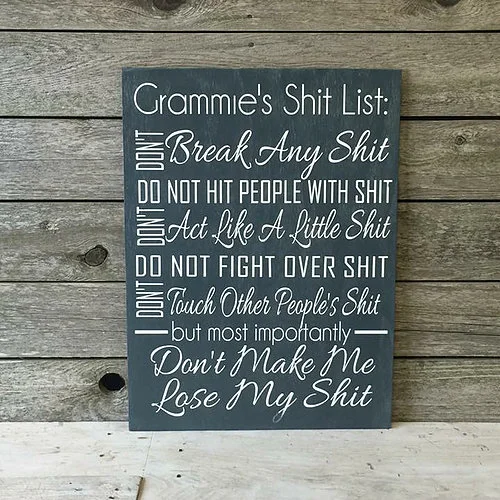 Grammie's Shit List:
DON'T Break Any Shit
DO NOT HIT PEOPLE WITH SHIT
DON'T Act Like A Little Shit
DO NOT FIGHT OVER SHIT
DON'T Touch Other People's Shit
but most importantly
Don't Make Me
Lose My Shit